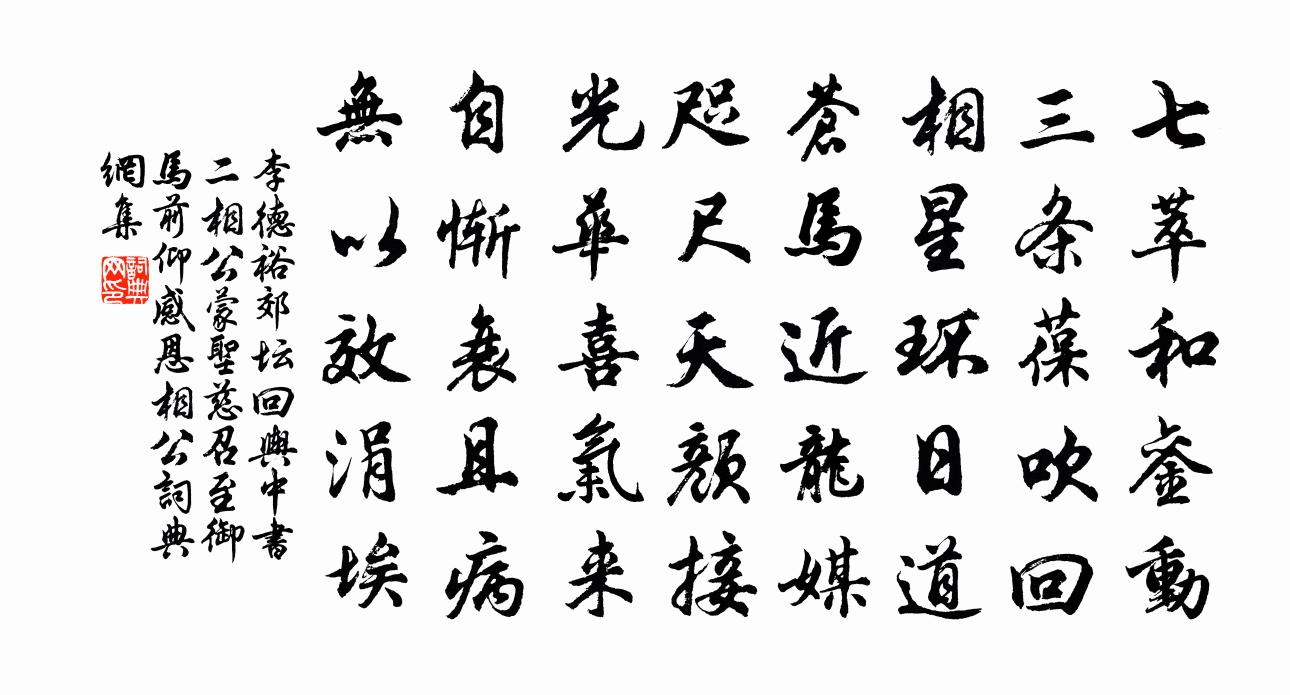 七萃和銮動
三条葆吹回
相星环日道
蒼馬近龍媒
咫尺天顔接
光華喜氣来
自惭衰且病
無以效涓埃
李德裕郊坛回輿中書
二相公蒙聖慈召至御
馬前仰感恩相公詞典
網集
詞典网印